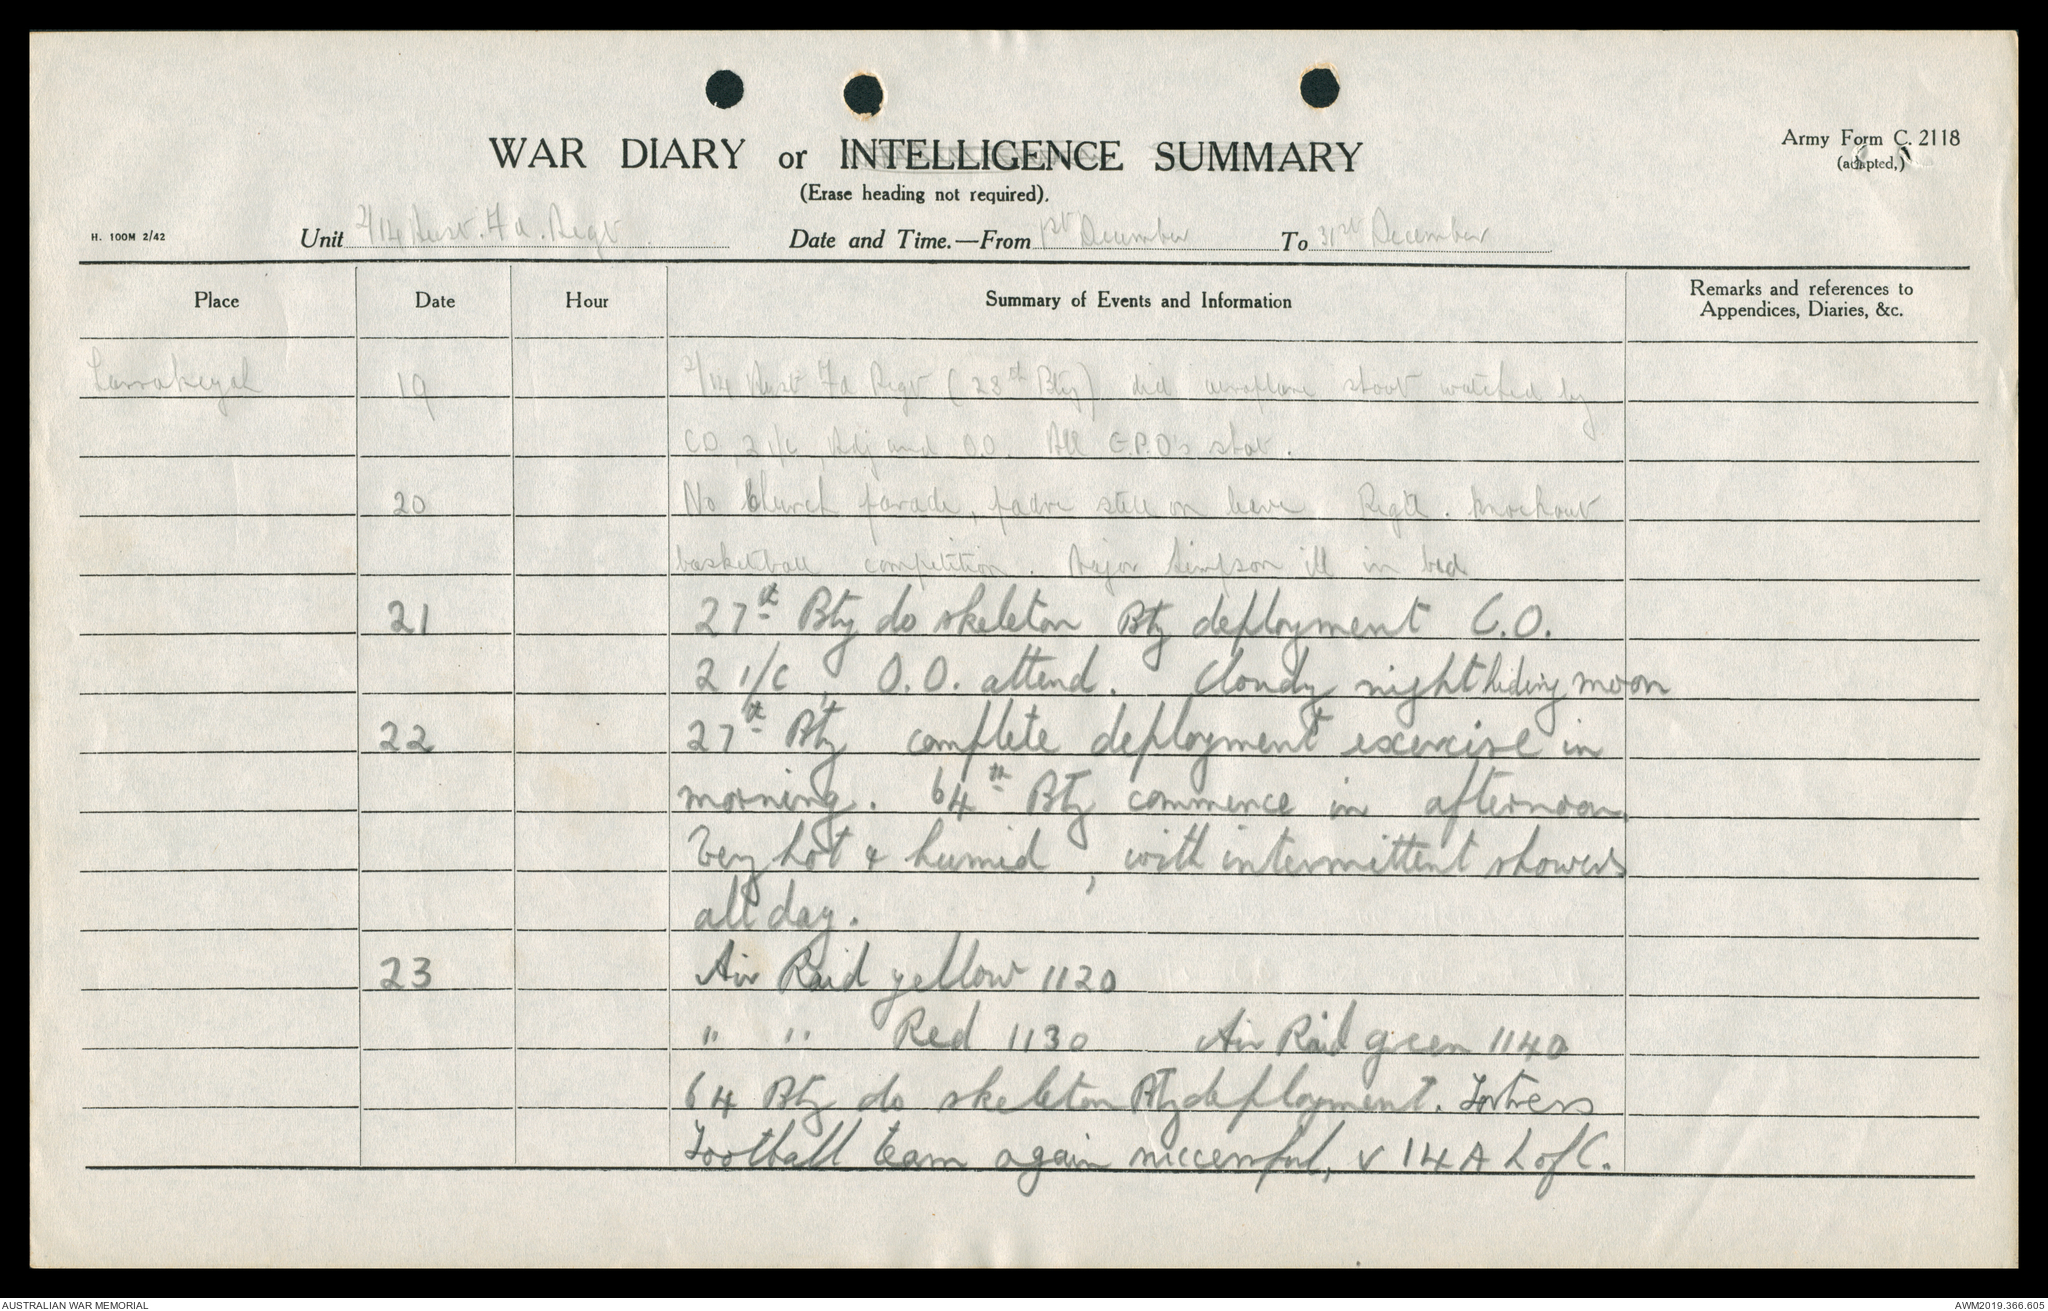 WAR DIARY or INTELLIGENCE SUMMARY
(Erase heading not required).
Army Form C. 2118
(adapted,)
H. 100M 2/42
Unit 2/14 Aust. Fd. Regt Date and Time.—From 1st December To 31st December
Place Date Hour Summary of Events and Information Remarks and references to Appendices, Diaries, &c.
Larrakeyah 19 2/14 Aust Fd Regt (28th Bty) did aeroplane shoot watched by
CO, 2 i/c, Adj and O.O. All G.P.O's shot.
20 No Church parade, padre still on leave Regtl. knockout
basketball competition. Major Simpson ill in bed
21 27th Bty do skeleton Bty deployment C.O.
2 i/c, O.O. attend. Cloudy night hiding moon
22 27th Bty complete deployment exercise in
morning. 64th Bty commence in afternoon.
Very hot & humid, with intermittent showers
all day.
23 Air Raid yellow 1120
" " Red 1130 Air Raid green 1140
64 Bty do skeleton Bty deployment. Fortress
Football team again successful, v 14 A L of C.
AUSTRALIAN WAR MEMORIAL
AWM2019.366.605